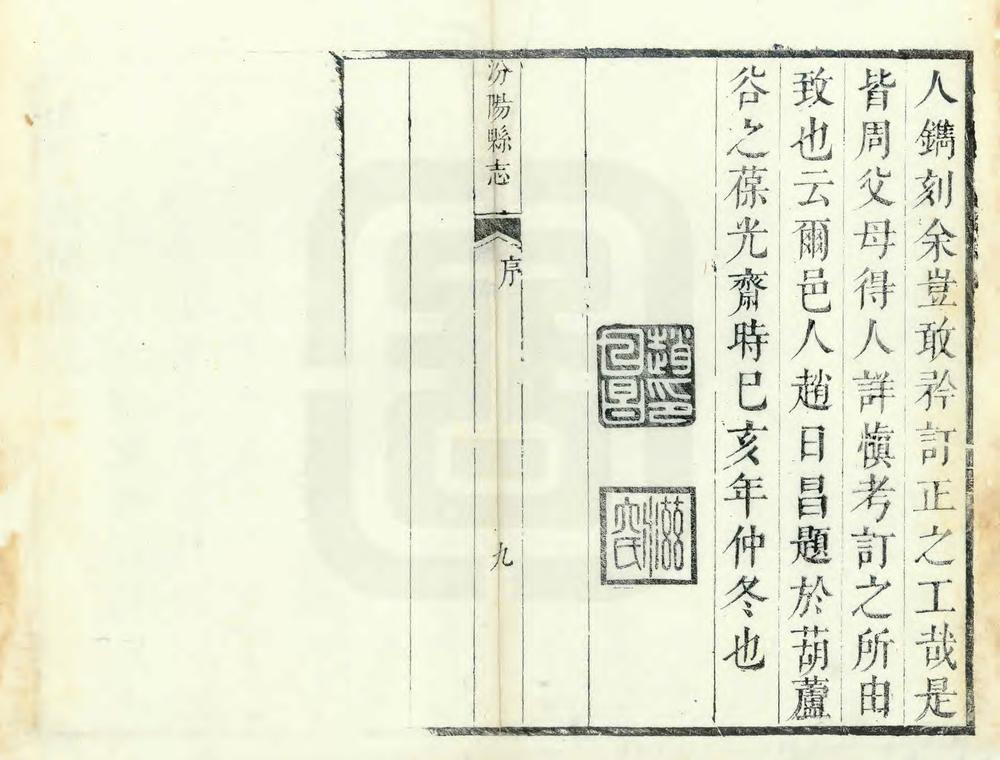 人鐫刻余豈敢矜訂正之工哉是
皆周父母得人詳慎考訂之所由
致也云爾邑人趙日昌題於葫蘆
谷之葆光齋時巳亥年仲冬也
趙印
日昌
汾陽縣志
序
九